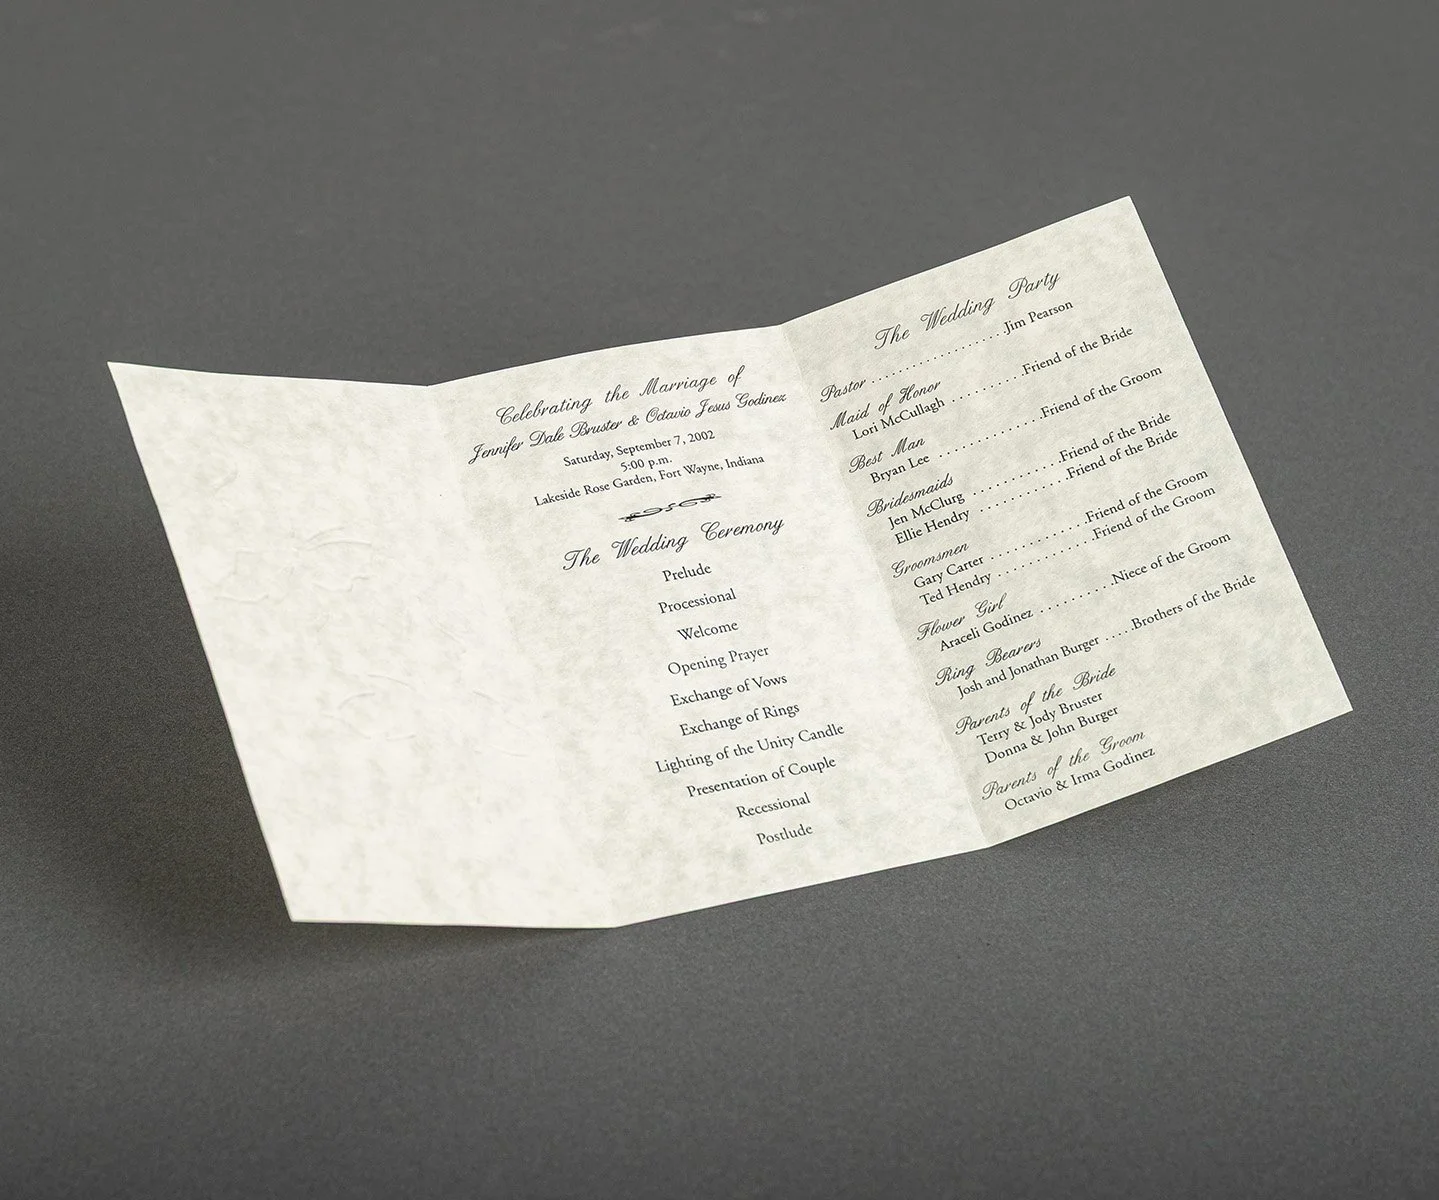 Celebrating the Marriage of
Jennifer Dale Bruster & Octavio Jesus Godinez
Saturday, September 7, 2002
5:00 p.m.
Lakeside Rose Garden, Fort Wayne, Indiana
The Wedding Ceremony
Prelude
Processional
Welcome
Opening Prayer
Exchange of Vows
Exchange of Rings
Lighting of the Unity Candle
Presentation of Couple
Recessional
Postlude
The Wedding Party
Pastor . . . . . . . . . . . . . . . . . . . .Jim Pearson
Maid of Honor
Lori McCullagh . . . . . . . . . . .Friend of the Bride
Best Man
Bryan Lee . . . . . . . . . . . . . . .Friend of the Groom
Bridesmaids
Jen McClurg . . . . . . . . . . . . .Friend of the Bride
Ellie Hendry . . . . . . . . . . . . .Friend of the Bride
Groomsmen
Gary Carter . . . . . . . . . . . . . .Friend of the Groom
Ted Hendry . . . . . . . . . . . . . .Friend of the Groom
Flower Girl
Araceli Godinez . . . . . . . . . . .Niece of the Groom
Ring Bearers
Josh and Jonathan Burger . . . . .Brothers of the Bride
Parents of the Bride
Terry & Jody Bruster
Donna & John Burger
Parents of the Groom
Octavio & Irma Godinez